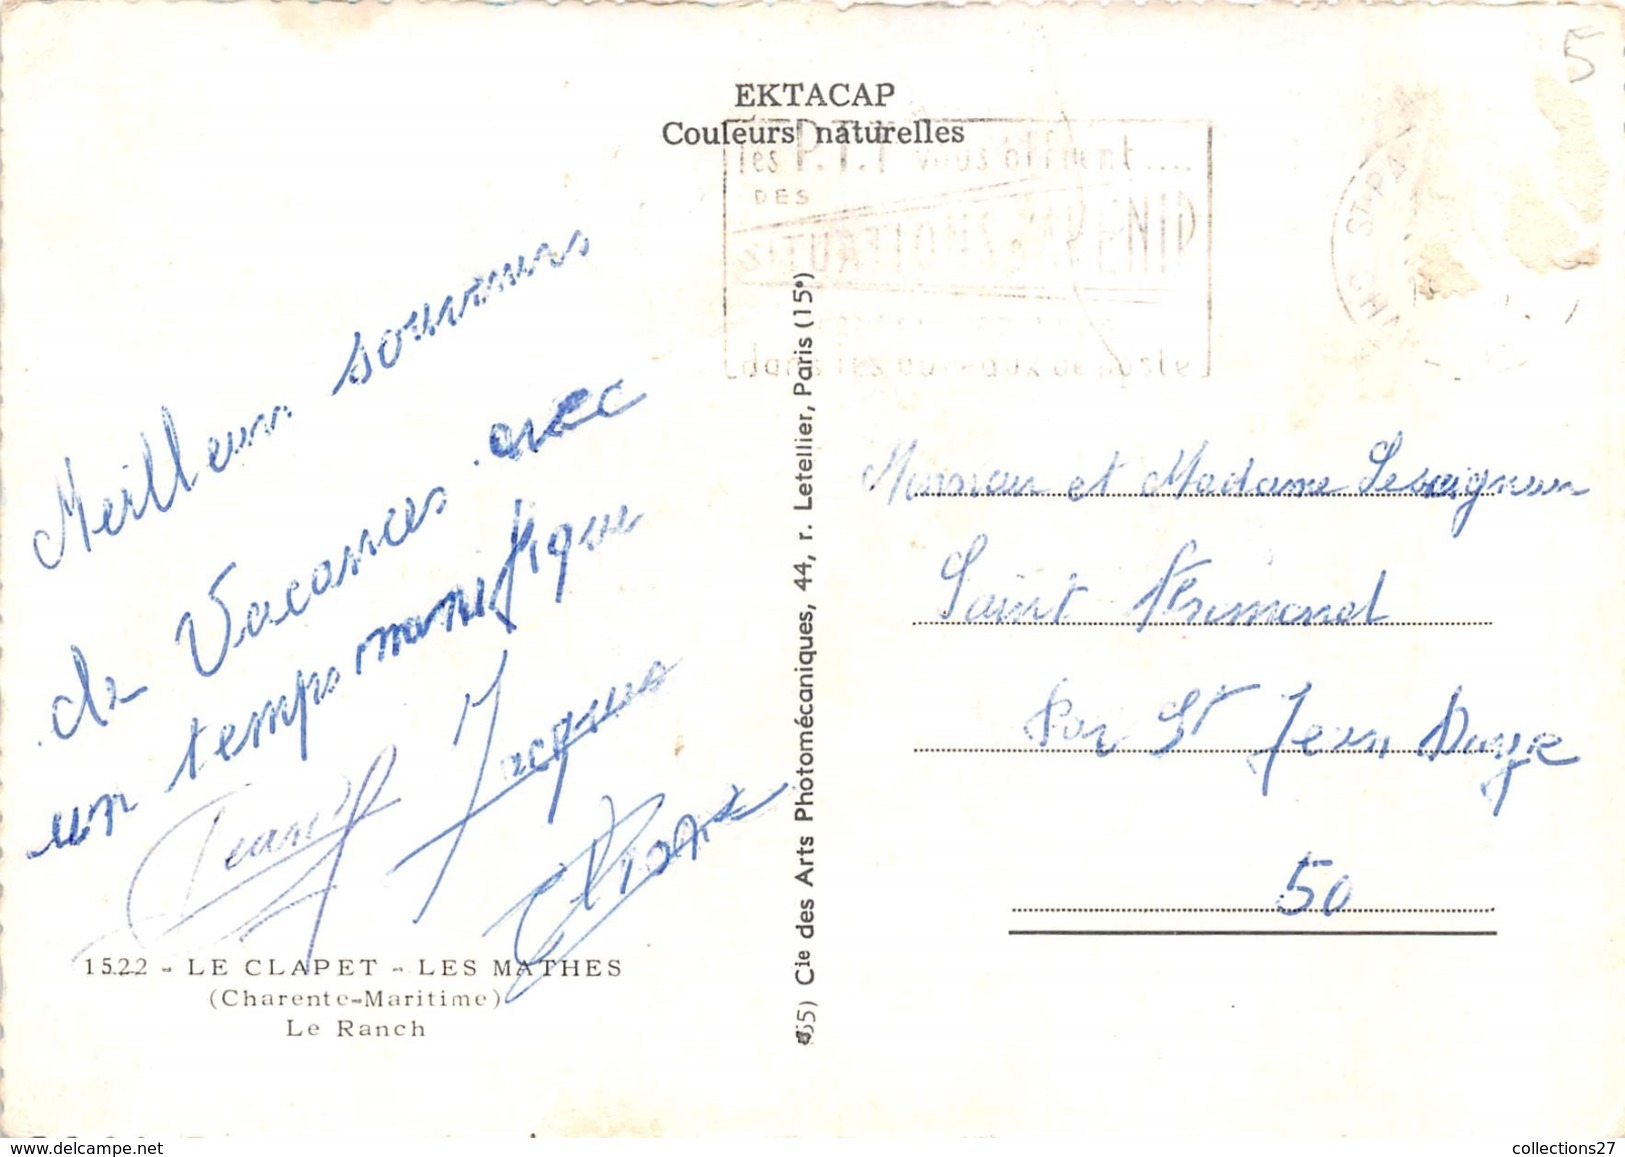 5
EKTACAP
Couleurs naturelles
les P.T.T vous offrent....
DES
SITUATIONS D'AVENIR
dans les bureaux de poste
ST-PA
Meilleurs souvenirs
de Vacances avec
un temps magnifique
Jacques
1522 - LE CLAPET - LES MATHES
(Charente-Maritime)
Le Ranch
Cie des Arts Photomécaniques, 44, r. Letellier, Paris (15e)
Monsieur et Madame Lesaigneur
Saint
Par St Jean Daye
50
collections27